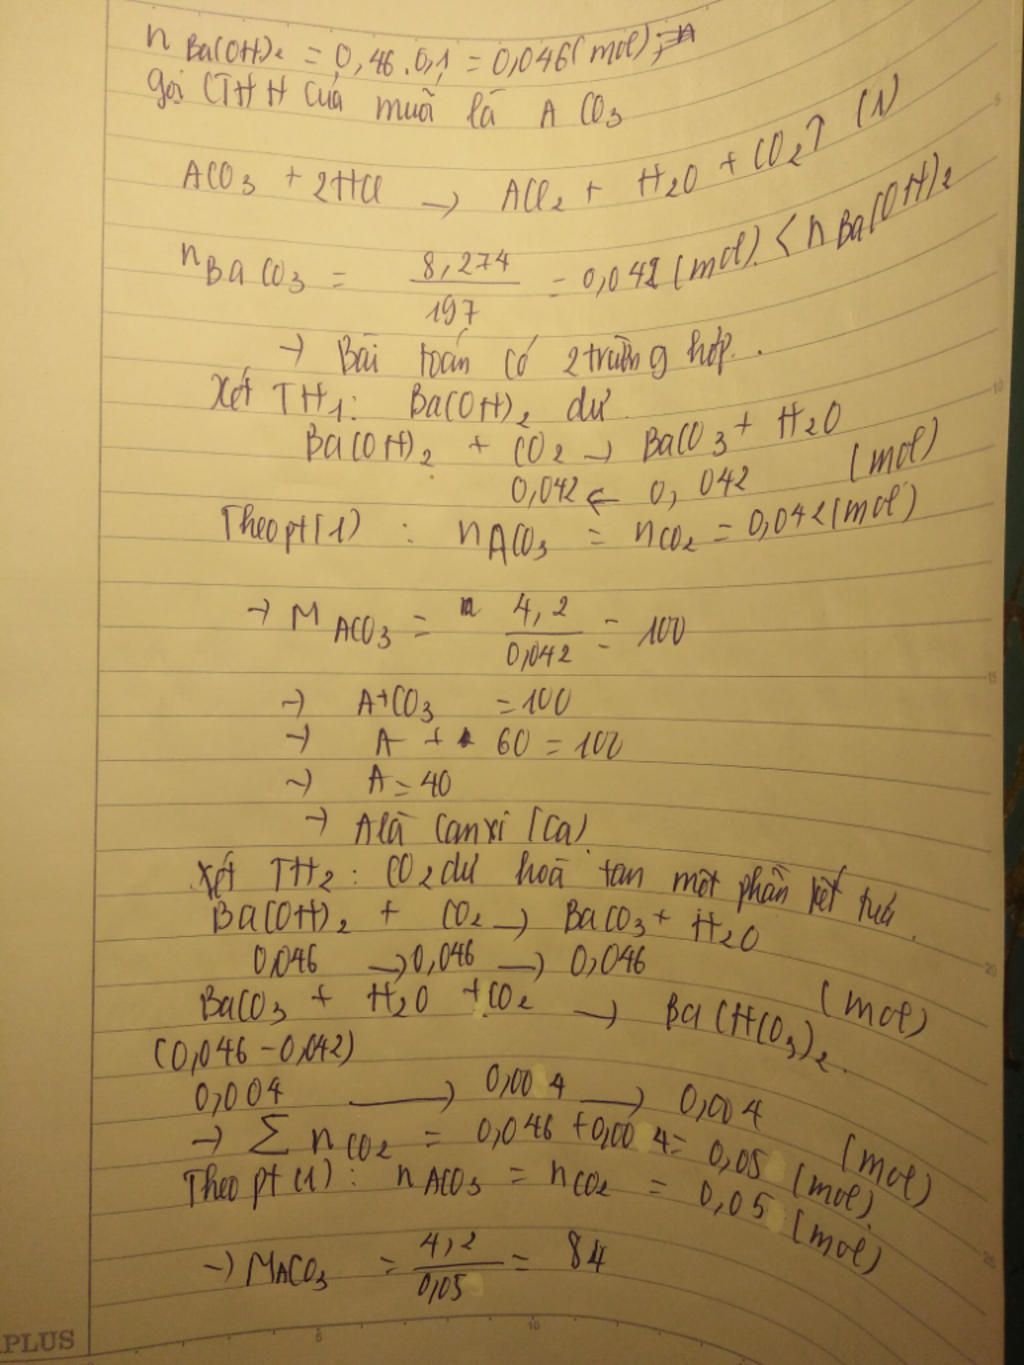 n Ba(OH)₂ = 0,46.0,1 = 0,046 (mol)
gọi CTHH của muối là A CO₃
ACO₃ + 2HCl → ACl₂ + H₂O + CO₂↑ (1)
n BaCO₃ = 8,274 / 197 = 0,042 (mol) < n Ba(OH)₂
→ Bài toán có 2 trường hợp.
Xét TH₁: Ba(OH)₂ dư
Ba(OH)₂ + CO₂ → BaCO₃ + H₂O
0,042 ← 0,042 (mol)
Theo pt (1) : n ACO₃ = n CO₂ = 0,042 (mol)
→ M ACO₃ = 4,2 / 0,042 = 100
→ A+CO₃ = 100
→ A + 60 = 100
→ A = 40
→ A là Canxi (Ca)
Xét TH₂: CO₂ dư hoà tan một phần kết tủa.
Ba(OH)₂ + CO₂ → BaCO₃ + H₂O
0,046 → 0,046 → 0,046 (mol)
BaCO₃ + H₂O + CO₂ → Ba(HCO₃)₂.
(0,046 - 0,042)
0,004 → 0,004 → 0,004 (mol)
→ Σ n CO₂ = 0,046 + 0,004 = 0,05 (mol)
Theo pt (1): n ACO₃ = n CO₂ = 0,05 (mol)
→ M ACO₃ = 4,2 / 0,05 = 84
PLUS
5
10
15
20
25
5
10